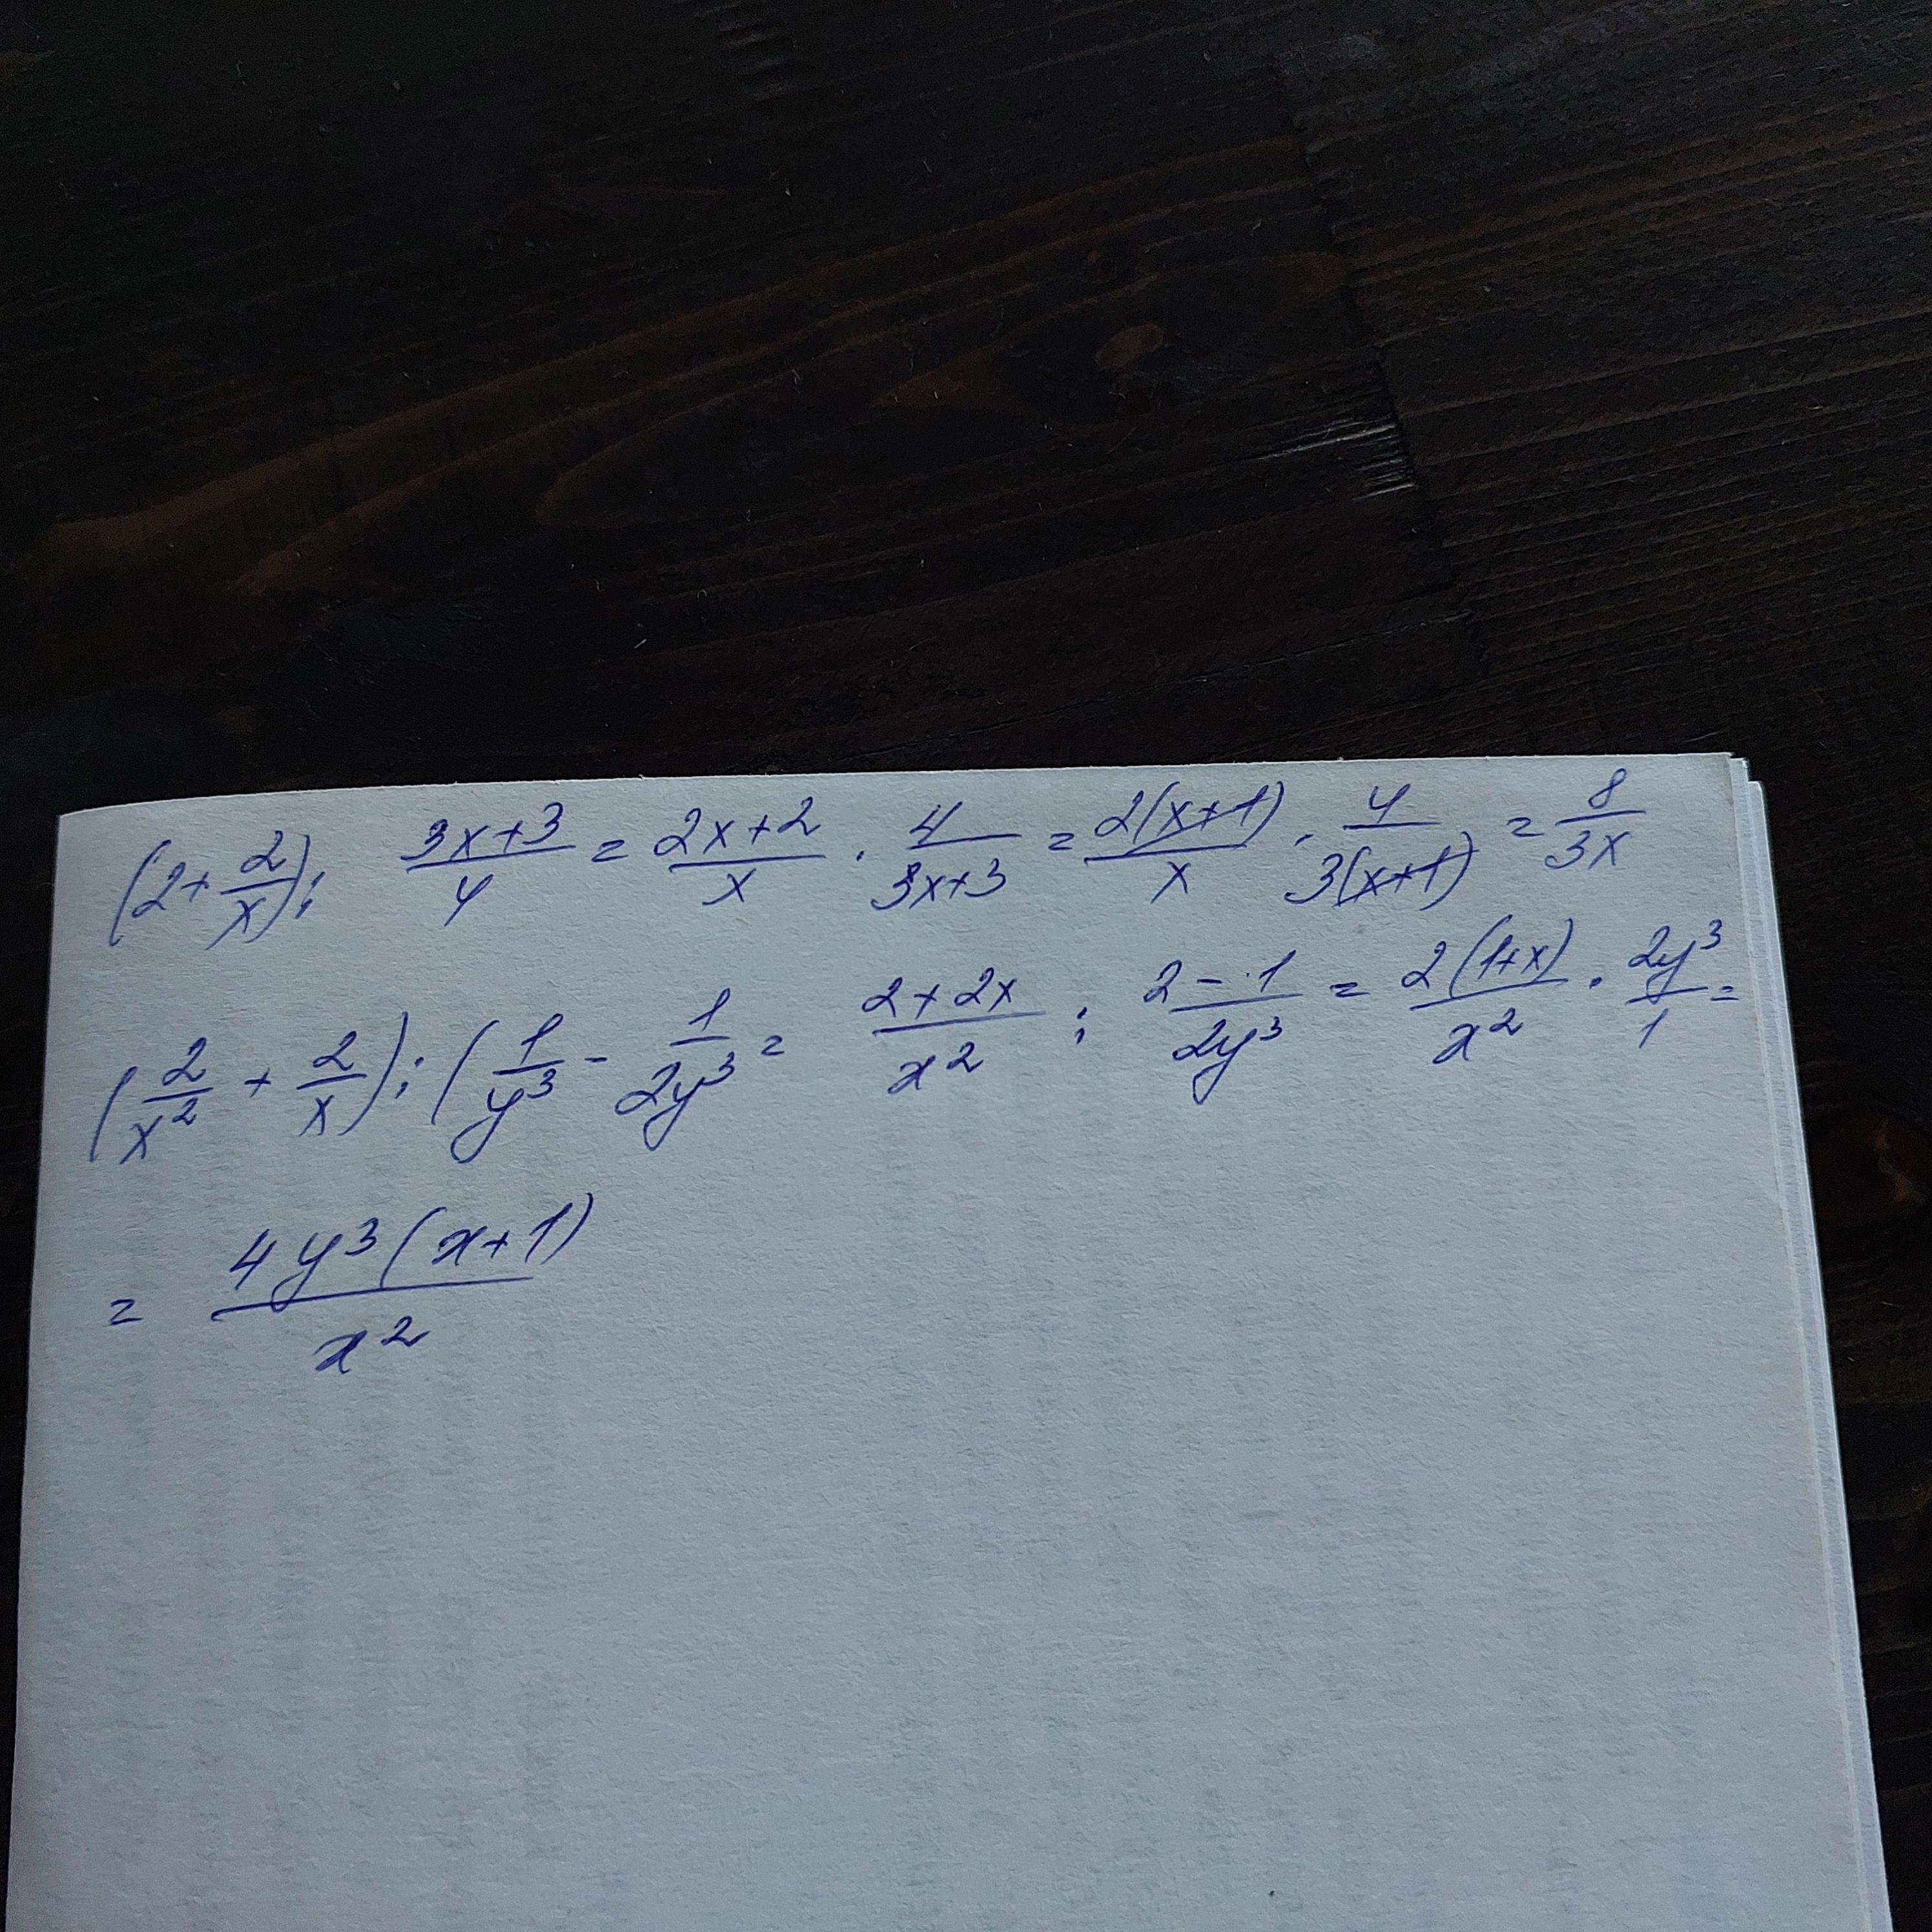 (2+2/x): (3x+3)/4 = (2x+2)/x · 4/(3x+3) = 2(x+1)/x · 4/3(x+1) = 8/3x
(2/x² + 2/x) : (1/y³ - 1/2y³ = (2+2x)/x² : (2-1)/2y³ = 2(1+x)/x² · 2y³/1 =
= 4y³(x+1)/x²